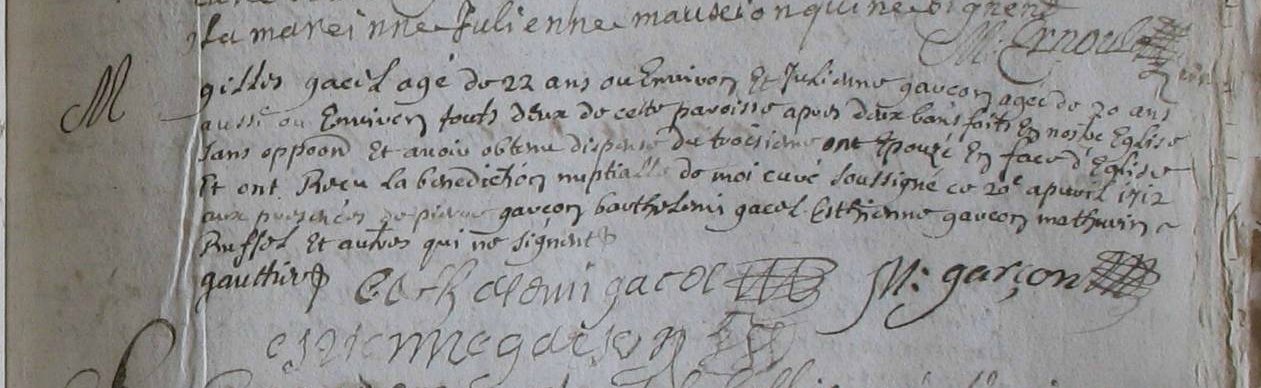 la mareinne Julienne mausion qui ne signent
M: Ernoul
M
gilles gacel agé de 22 ans ou Environ Et Julienne garçon agée de 20 ans
aussi ou Environ touts deux de cette paroisse apres deux bans faits En nostre Eglise
sans oppoon Et avoir obtenu dispense du troisieme ont Epouzé En face d'Eglise
Et ont Receu la benediction nuptialle de moi curé soussigné ce 20e apvril 1712
aux presences de pierre garçon barthelemi gacel Esthienne garçon mathurin
Ruffel Et autres qui ne signent
gaultier barthelemi gacel M: garçon
estienne garson